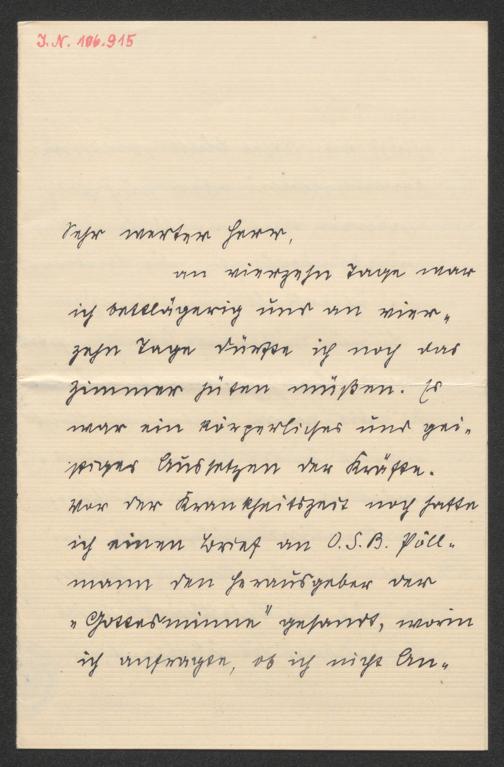 J.N. 106.915
Sehr werter Herr,
an vierzehn Tage war
ich bettlägerig und an vier-
zehn Tage dürfte ich noch das
Zimmer hüten müßen. Es
war ein körperliches und gei-
stiges Aussetzen der Kräfte.
Vor der Krankheitszeit noch hatte
ich einen Brief an O.S.B. Pöll-
mann den Herausgeber der
„Gottesminne" gesandt, worin
ich anfragte, ob ich nicht An-